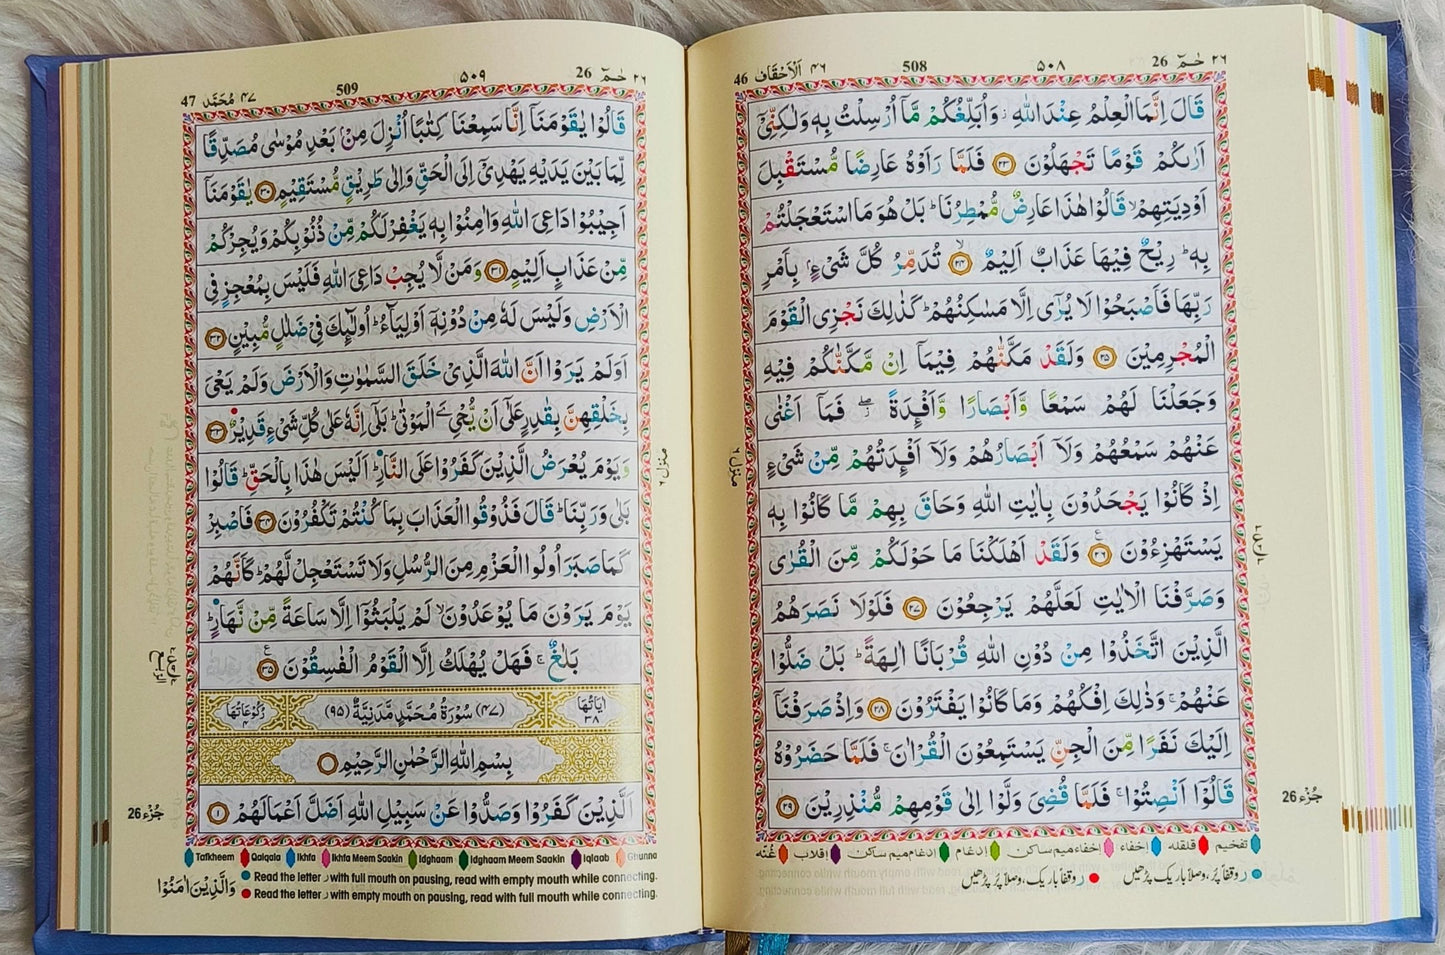 ٢٦ حٰمٓ 26
٥٠٨
508
٤٦ اَلْاَحْقَاف 46
قَالَ اِنَّمَا الْعِلْمُ عِنْدَ اللّٰهِ ۖ وَاُبَلِّغُكُمْ مَّاۤ اُرْسِلْتُ بِهٖ وَلٰكِنِّيْۤ
اَرٰىكُمْ قَوْمًا تَجْهَلُوْنَ ۝٢٣ فَلَمَّا رَاَوْهُ عَارِضًا مُّسْتَقْبِلَ
اَوْدِيَتِهِمْ ۙ قَالُوْا هٰذَا عَارِضٌ مُّمْطِرُنَا ؕ بَلْ هُوَ مَا اسْتَعْجَلْتُمْ
بِهٖ ؕ رِيْحٌ فِيْهَا عَذَابٌ اَلِيْمٌ ۝٢٤ۙ تُدَمِّرُ كُلَّ شَيْءٍۭ بِاَمْرِ
رَبِّهَا فَاَصْبَحُوْا لَا يُرٰۤى اِلَّا مَسٰكِنُهُمْ ؕ كَذٰلِكَ نَجْزِي الْقَوْمَ
الْمُجْرِمِيْنَ ۝٢٥ وَلَقَدْ مَكَّنّٰهُمْ فِيْمَاۤ اِنْ مَّكَّنّٰكُمْ فِيْهِ
وَجَعَلْنَا لَهُمْ سَمْعًا وَّاَبْصَارًا وَّاَفْـِٕدَةً ۖ فَمَاۤ اَغْنٰى
عَنْهُمْ سَمْعُهُمْ وَلَاۤ اَبْصَارُهُمْ وَلَاۤ اَفْـِٕدَتُهُمْ مِّنْ شَيْءٍ
اِذْ كَانُوْا يَجْحَدُوْنَ بِاٰيٰتِ اللّٰهِ وَحَاقَ بِهِمْ مَّا كَانُوْا بِهٖ
يَسْتَهْزِءُوْنَ ۝٢٦ وَلَقَدْ اَهْلَكْنَا مَا حَوْلَكُمْ مِّنَ الْقُرٰى
وَصَرَّفْنَا الْاٰيٰتِ لَعَلَّهُمْ يَرْجِعُوْنَ ۝٢٧ فَلَوْلَا نَصَرَهُمُ
الَّذِيْنَ اتَّخَذُوْا مِنْ دُوْنِ اللّٰهِ قُرْبَانًا اٰلِهَةً ؕ بَلْ ضَلُّوْا
عَنْهُمْ ۚ وَذٰلِكَ اِفْكُهُمْ وَمَا كَانُوْا يَفْتَرُوْنَ ۝٢٨ وَاِذْ صَرَفْنَاۤ
اِلَيْكَ نَفَرًا مِّنَ الْجِنِّ يَسْتَمِعُوْنَ الْقُرْاٰنَ ۚ فَلَمَّا حَضَرُوْهُ
قَالُوْۤا اَنْصِتُوْا ۚ فَلَمَّا قُضِيَ وَلَّوْا اِلٰى قَوْمِهِمْ مُّنْذِرِيْنَ ۝٢٩
منزل ٦
جُزْء 26
تفخیم قلقلہ إخفاء إخفاء میم ساکن إدغام إدغام میم ساکن إقلاب غُنّہ
ر وقفاً پُر، وصلاً باریک پڑھیں ر وقفاً باریک، وصلاً پُر پڑھیں
٢٦ حٰمٓ 26
٥٠٩
509
٤٧ مُحَمَّد 47
قَالُوْا يٰقَوْمَنَاۤ اِنَّا سَمِعْنَا كِتٰبًا اُنْزِلَ مِنْۢ بَعْدِ مُوْسٰى مُصَدِّقًا
لِّمَا بَيْنَ يَدَيْهِ يَهْدِيْۤ اِلَى الْحَقِّ وَاِلٰى طَرِيْقٍ مُّسْتَقِيْمٍ ۝٣٠ يٰقَوْمَنَاۤ
اَجِيْبُوْا دَاعِيَ اللّٰهِ وَاٰمِنُوْا بِهٖ يَغْفِرْ لَكُمْ مِّنْ ذُنُوْبِكُمْ وَيُجِرْكُمْ
مِّنْ عَذَابٍ اَلِيْمٍ ۝٣١ وَمَنْ لَّا يُجِبْ دَاعِيَ اللّٰهِ فَلَيْسَ بِمُعْجِزٍ فِي
الْاَرْضِ وَلَيْسَ لَهٗ مِنْ دُوْنِهٖۤ اَوْلِيَآءُ ؕ اُولٰٓئِكَ فِيْ ضَلٰلٍ مُّبِيْنٍ ۝٣٢
اَوَلَمْ يَرَوْا اَنَّ اللّٰهَ الَّذِيْ خَلَقَ السَّمٰوٰتِ وَالْاَرْضَ وَلَمْ يَعْيَ
بِخَلْقِهِنَّ بِقٰدِرٍ عَلٰۤى اَنْ يُّحْيِ َۧ الْمَوْتٰى ؕ بَلٰۤى اِنَّهٗ عَلٰى كُلِّ شَيْءٍ قَدِيْرٌ ۝٣٣
وَيَوْمَ يُعْرَضُ الَّذِيْنَ كَفَرُوْا عَلَى النَّارِ ؕ اَلَيْسَ هٰذَا بِالْحَقِّ ؕ قَالُوْا
بَلٰى وَرَبِّنَا ؕ قَالَ فَذُوْقُوا الْعَذَابَ بِمَا كُنْتُمْ تَكْفُرُوْنَ ۝٣٤ فَاصْبِرْ
كَمَا صَبَرَ اُولُوا الْعَزْمِ مِنَ الرُّسُلِ وَلَا تَسْتَعْجِلْ لَّهُمْ ؕ كَاَنَّهُمْ
يَوْمَ يَرَوْنَ مَا يُوْعَدُوْنَ ۙ لَمْ يَلْبَثُوْۤا اِلَّا سَاعَةً مِّنْ نَّهَارٍ ؕ
بَلٰغٌ ۚ فَهَلْ يُهْلَكُ اِلَّا الْقَوْمُ الْفٰسِقُوْنَ ۝٣٥
اٰيَاتُهَا ٣٨ (٤٧) سُوْرَةُ مُحَمَّدٍ مَّدَنِيَّةٌ (٩٥) رُكُوْعَاتُهَا ٤
بِسْمِ اللّٰهِ الرَّحْمٰنِ الرَّحِيْمِ
اَلَّذِيْنَ كَفَرُوْا وَصَدُّوْا عَنْ سَبِيْلِ اللّٰهِ اَضَلَّ اَعْمَالَهُمْ ۝١
منزل ٦
الرُّبع
جُزْء 26
Tafkheem Qalqala Ikhfa Ikhfa Meem Saakin Idghaam Idghaam Meem Saakin Iqlaab Ghunna
Read the letter ر with full mouth on pausing, read with empty mouth while connecting.
Read the letter ر with empty mouth on pausing, read with full mouth while connecting.
وَالَّذِيْنَ اٰمَنُوْا